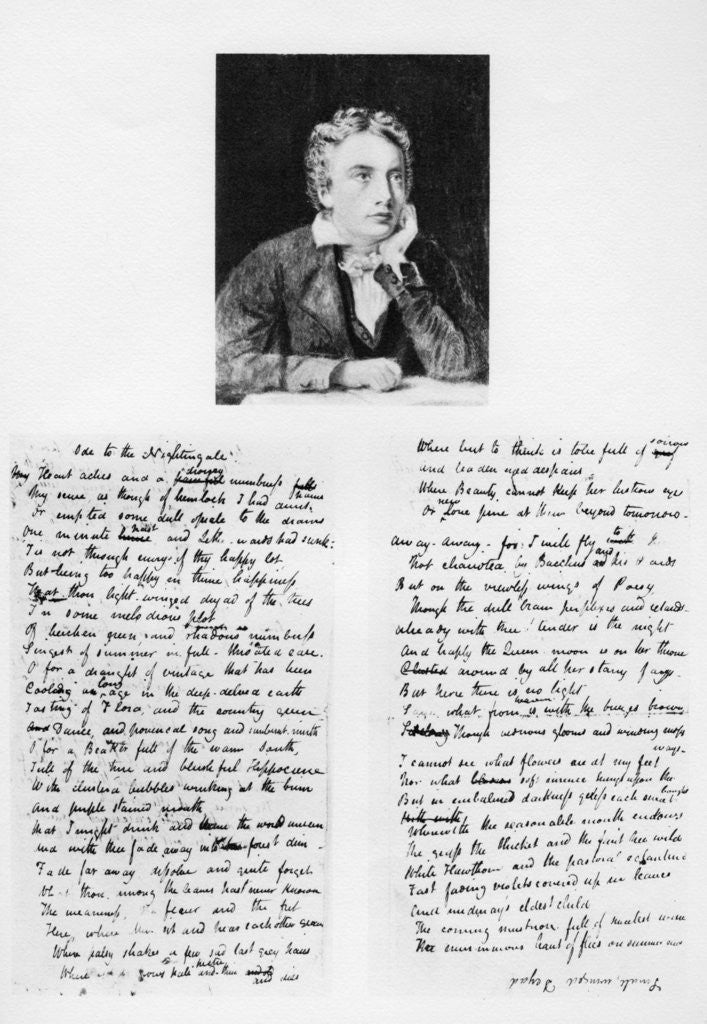 Ode to the Nightingale
My Heart aches and a drowsy painful numbness falls
My sense as though of hemlock I had drunk
Or emptied some dull opiate to the drains
One minute past and Lethe wards had sunk
Tis not through envy of thy happy lot
But being too happy in thine happiness
That thou light winged dryad of the trees
In some melodious plot
Of beechen green and shadows numberless
Singest of summer in full-throated ease.
O for a draught of vintage that has been
Cooling an age in the deep-delved earth
Tasting of Flora and the country green
And Dance, and provencal song and sunburnt mirth
O for a Beaker full of the warm South,
Full of the true and blushful Hippocrene
With clustered bubbles winking at the brim
And purple stained mouth
That I might drink and leave the world unseen
And with thee fade away into the forest dim-
Fade far away dissolve and quite forget
What thou among the leaves hast never known
The weariness, the fever and the fret
Here, where Men sit and hear each other groan
Where palsy shakes a few sad last grey hairs
Where youth grows pale and thin and dies
Where but to think is to be full of sorrow
and leaden eyed despairs
Where Beauty cannot keep her lustrous eyes
Or new Love pine at them beyond tomorrow-
Away-away-for I will fly to thee
Not charioted by Bacchus and his Pards
But on the viewless wings of Poesy
Though the dull brain perplexes and retards-
Already with thee! tender is the night
And haply the Queen-moon is on her throne
Clustered around by all her starry fays-
But here there is no light
Save what from heaven is with the breezes blown
Through verdurous glooms and winding mossy
ways-
I cannot see what flowers are at my feet
Nor what soft incense hangs upon the boughs
But in embalmed darkness guess each sweet
Wherewith the seasonable month endows
The grass the thicket and the fruit tree wild
White Hawthorn and the pastoral eglantine
Fast fading violets covered up in leaves
And midmay's eldest child
The coming muskrose full of sweetest wine
The murmurous haunt of flies on summer eves
Small, winged Dryad